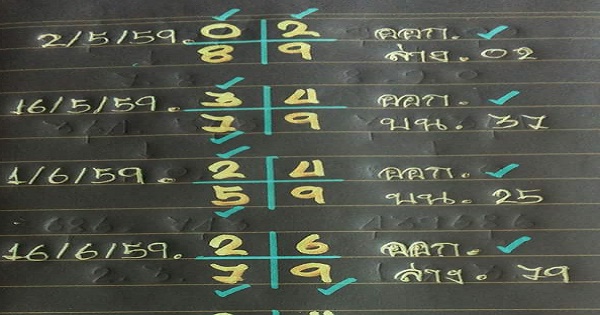 2/5/59. 0 2 ออก. ✓
8 9 ล่าง. 02
16/5/59. 3 4 ออก. ✓
7 9 บน. 37
1/6/59. 2 4 ออก. ✓
5 9 บน. 25
16/6/59. 2 6 ออก. ✓
7 9 ล่าง. 79